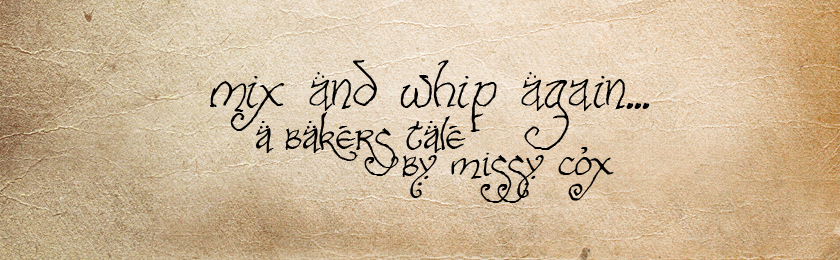 mix and whip again...
a bakers tale
by missy cox